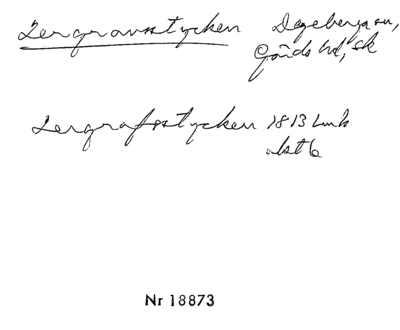 Lergravsstycken Degeberga sn,
Gärds hd, sk
Lergrafsstycken 1813 Lmh
akt 6
Nr 18873